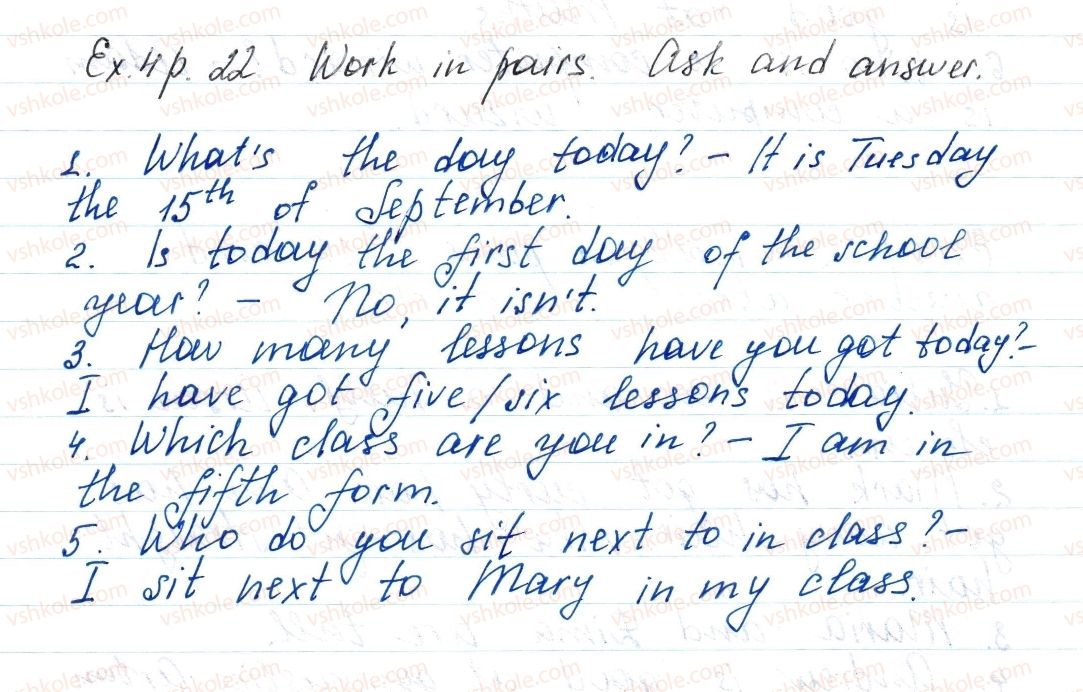 Ex. 4 p. 22 Work in pairs. Ask and answer.
1. What's the day today? – It is Tuesday
the 15th of September.
2. Is today the first day of the school
year? – No, it isn't.
3. How many lessons have you got today? –
I have got five/six lessons today.
4. Which class are you in? – I am in
the fifth form.
5. Who do you sit next to in class? –
I sit next to Mary in my class.